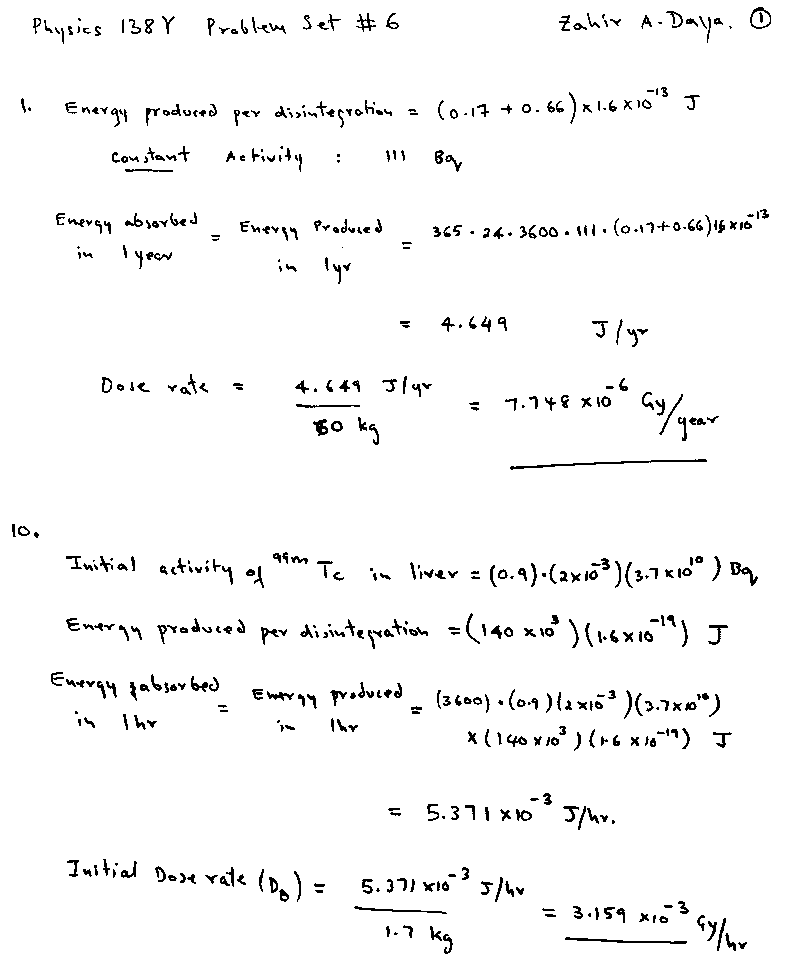 Physics 138Y Problem Set # 6 Zahir A. Daya. ①
1. Energy produced per disintegration = (0.17 + 0.66) x 1.6 x 10^-13 J
Constant Activity : 111 Bq
Energy absorbed in 1 year = Energy Produced in 1yr = 365 · 24 · 3600 · 111 · (0.17+0.66) 1.6 x 10^-13
= 4.649 J/yr
Dose rate = 4.649 J/yr / 60 kg = 7.748 x 10^-6 Gy/year
10.
Initial activity of 99m Tc in liver = (0.9)·(2x10^-3)(3.7x10^10) Bq
Energy produced per disintegration = (140 x10^3)(1.6x10^-19) J
Energy absorbed in 1hr = Energy produced in 1hr = (3600)·(0.9)(2x10^-3)(3.7x10^10)
x (140x10^3)(1.6 x 10^-19) J
= 5.371 x10^-3 J/hr.
Initial Dose rate (D0) = 5.371 x10^-3 J/hr / 1.7 kg = 3.159 x10^-3 Gy/hr